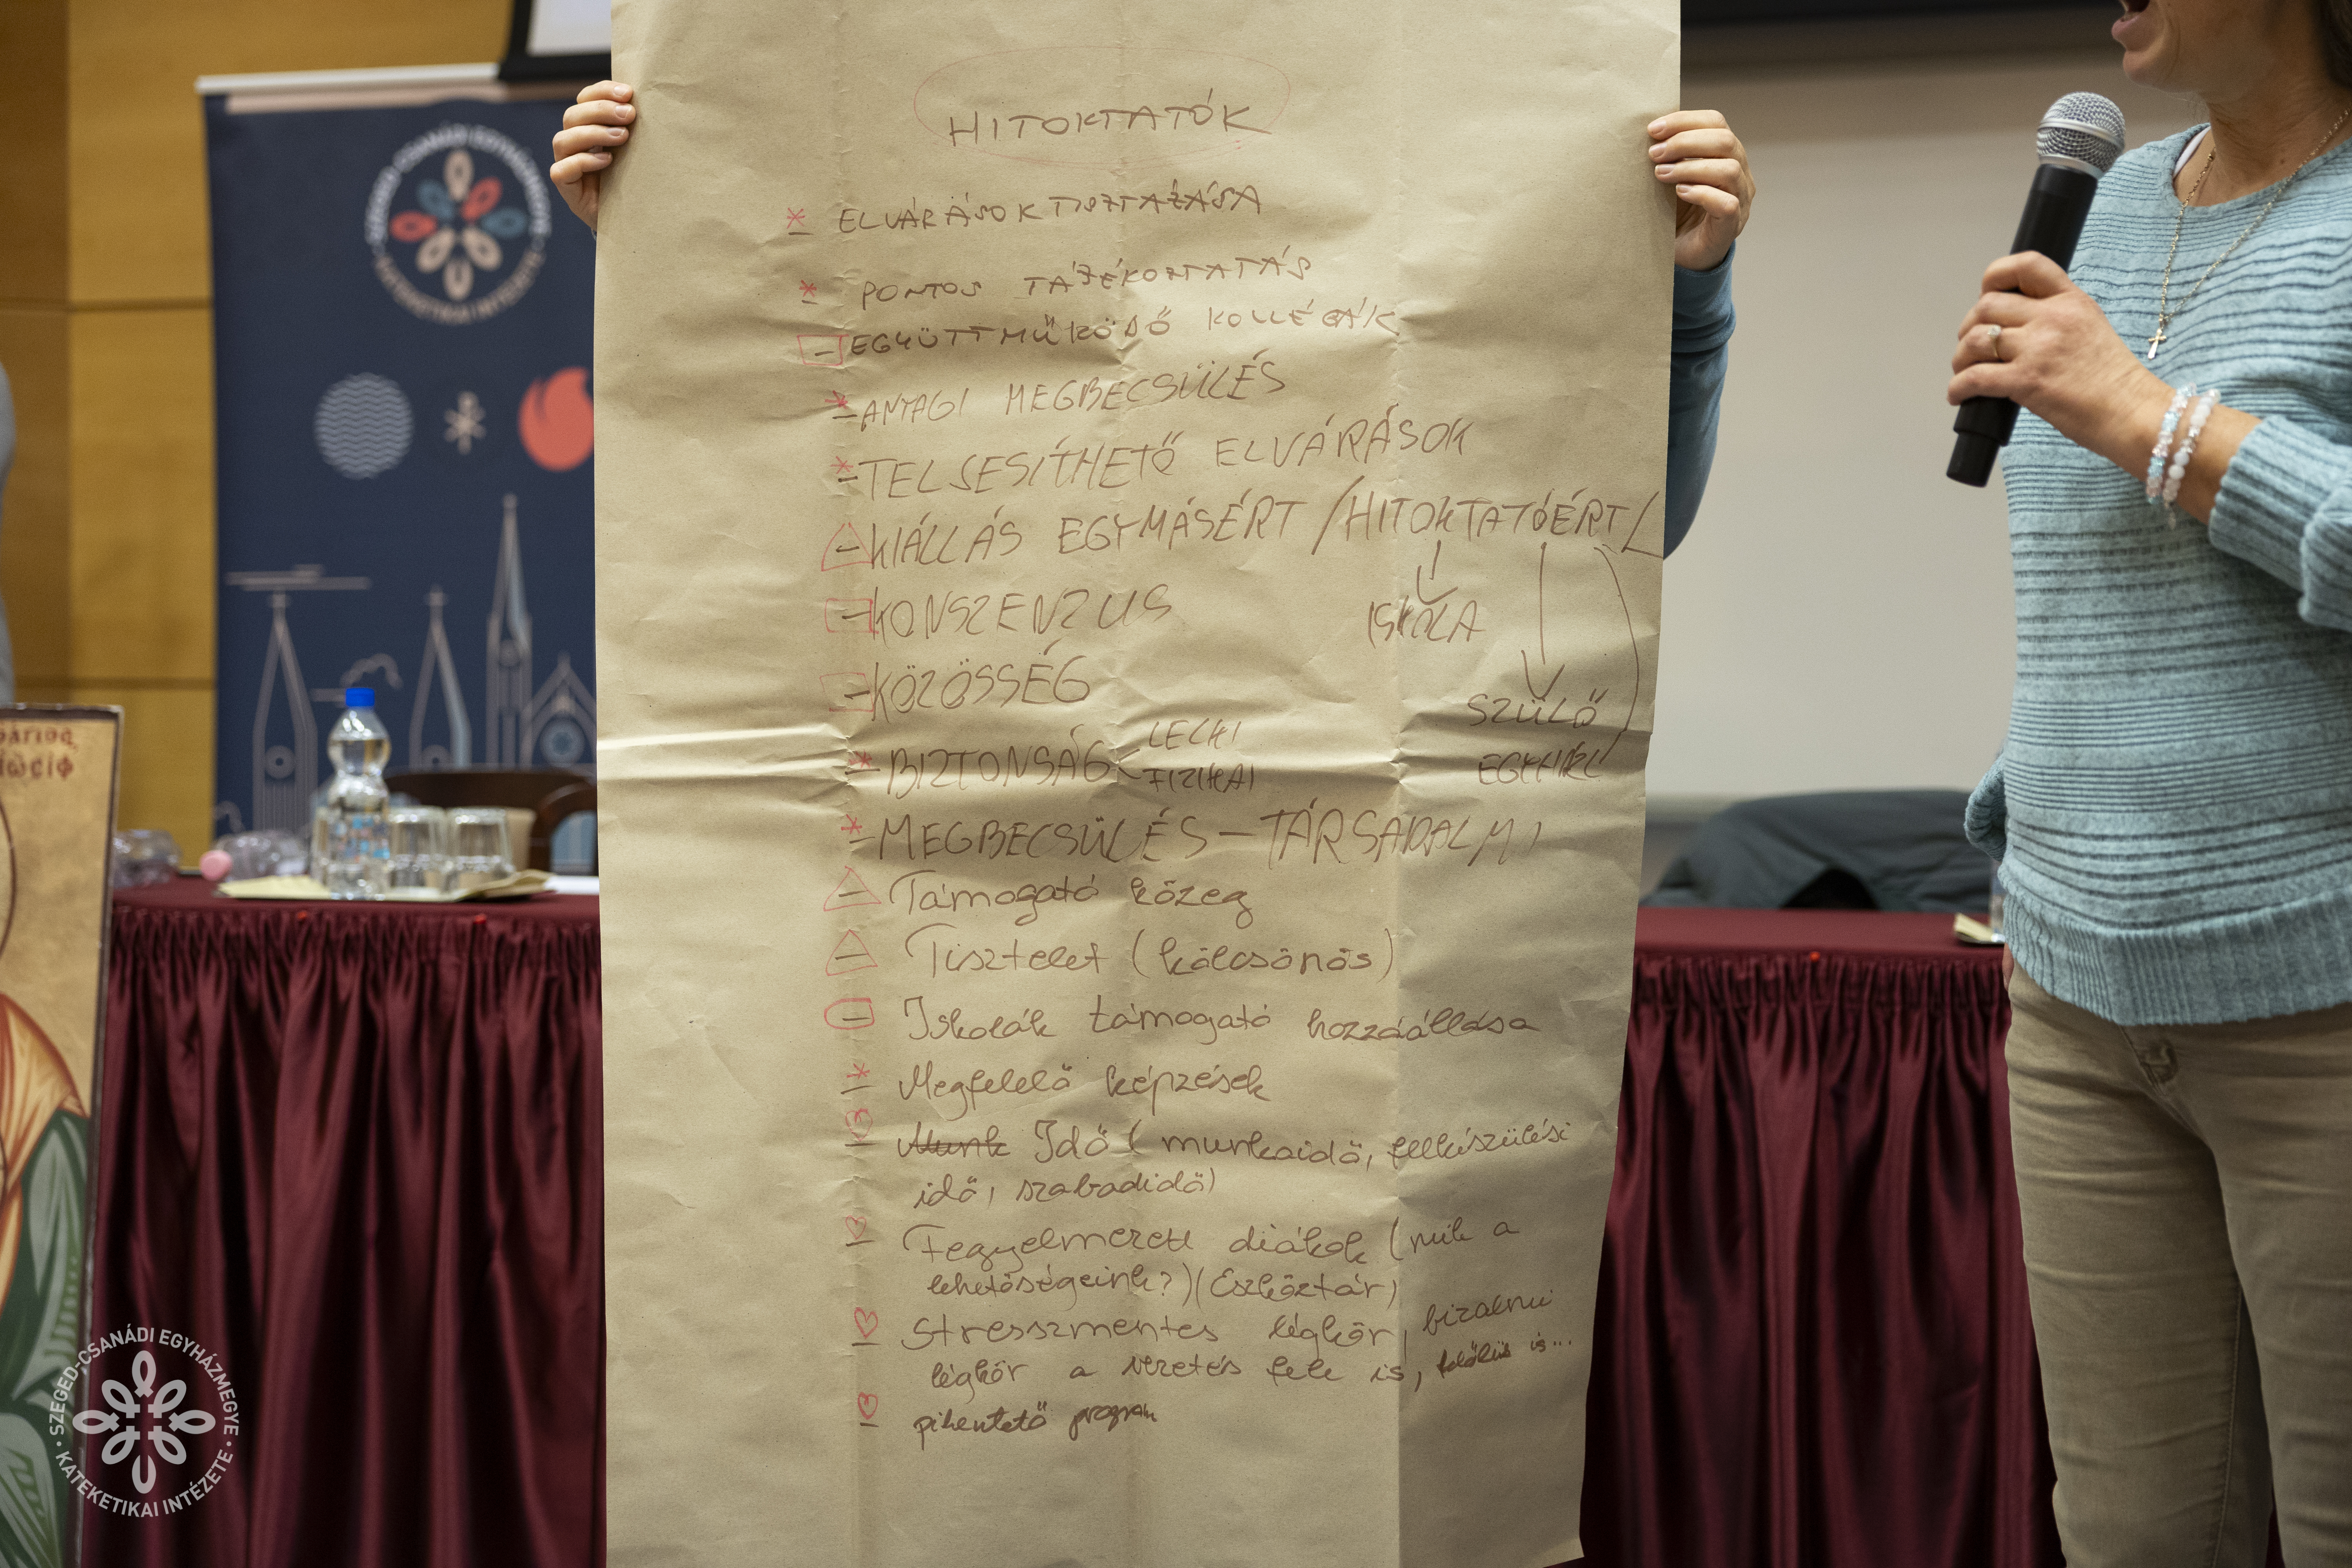 HITOKTATÓK
* ELVÁRÁSOK TISZTÁZÁSA
* PONTOS TÁJÉKOZTATÁS
- EGYÜTTMŰKÖDŐ KOLLÉGÁK
* - ANYAGI MEGBECSÜLÉS
* - TELJESÍTHETŐ ELVÁRÁSOK
- KIÁLLÁS EGYMÁSÉRT /HITOKTATÓÉRT/
ISKOLA
SZÜLŐ
- KONSZENZUS
- KÖZÖSSÉG
* - BIZTONSÁG
LELKI
FIZIKAI
* - MEGBECSÜLÉS - TÁRSADALMI
- Támogató közeg
- Tisztelet (kölcsönös)
- Iskolák támogató hozzáállása
* - Megfelelő képzések
- Munk Idő (munkaidő, felkészülési
idő, szabadidő)
- Fegyelmezett diákok (mik a
lehetőségeink?) (Eszköztár)
- Stresszmentes légkör, bizalmi
légkör a vezetés fele is, is...
- pihentető program
SZEGED-CSANÁDI EGYHÁZMEGYE
KATEKETIKAI INTÉZETE
SZEGED-CSANÁDI EGYHÁZMEGYE • KATEKETIKAI INTÉZETE •